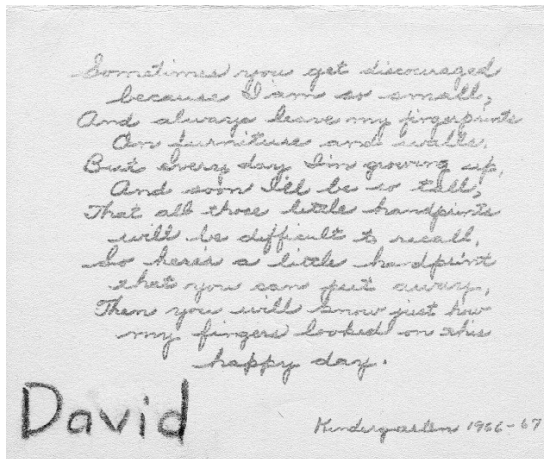 Sometimes you get discouraged
because I am so small,
And always leave my fingerprints
On furniture and walls.
But every day I'm growing up,
And soon I'll be so tall,
That all those little handprints
will be difficult to recall.
So heres a little handprint
that you can put away,
Then you will know just how
my fingers looked on this
happy day.
David
Kindergarten 1966-67